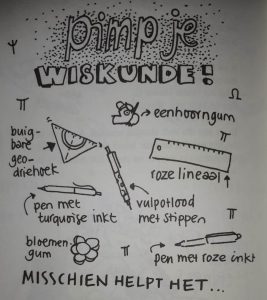 pimp je
WISKUNDE!
Ψ
Ω
π
eenhoorngum
buig-
bare
geo-
driehoek
π
roze lineaal
pen met
turquoise inkt
vulpotlood
met stippen
π
bloemen
gum
π
pen met roze inkt
MISSCHIEN HELPT HET...